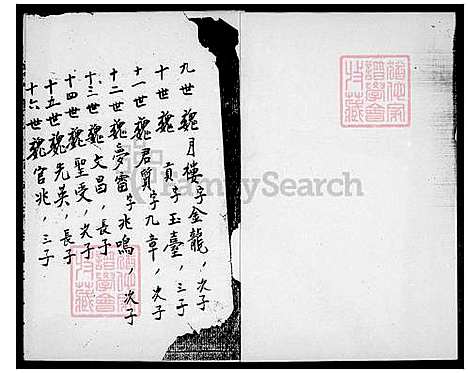 九世魏月樓字金龍，次子
十世魏貢字玉臺，三子
十一世魏君質字九章，次子
十二世魏夢雷字兆鳴，次子
十三世魏文昌，長子
十四世魏聖受，次子
十五世魏先英，長子
十六世魏官兆，三子
FamilySearch